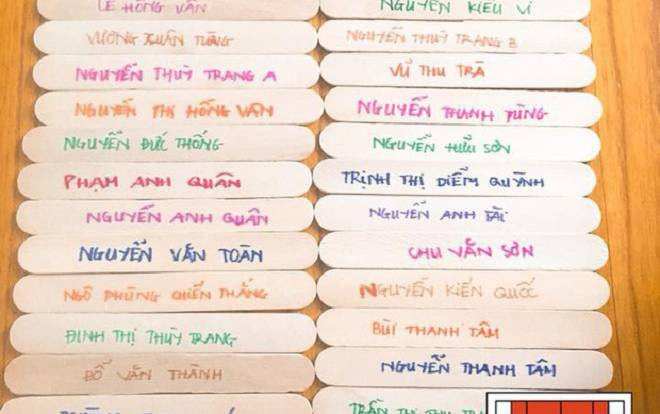 LÊ HỒNG VÂN
NGUYỄN KIỀU VI
VƯƠNG XUÂN TÙNG
NGUYỄN THUỲ TRANG B
NGUYỄN THUỲ TRANG A
VŨ THU TRÀ
NGUYỄN THỊ HỒNG VÂN
NGUYỄN THANH TÙNG
NGUYỄN ĐỨC THỐNG
NGUYỄN HỮU SƠN
PHẠM ANH QUÂN
TRỊNH THỊ DIỄM QUỲNH
NGUYỄN ANH QUÂN
NGUYỄN ANH
NGUYỄN VĂN TOÀN
CHU VĂN SƠN
NGÔ PHÙNG CHIẾN THẮNG
NGUYỄN KIẾN QUỐC
ĐINH THỊ THUỲ TRANG
BÙI THANH TÂM
ĐỖ VĂN THÀNH
NGUYỄN THANH TÂM
TRẦN THỊ THU